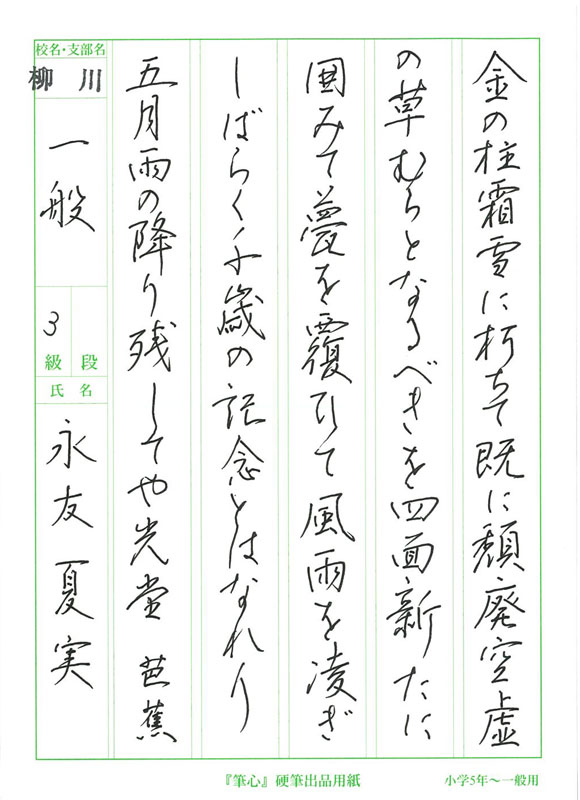 金の柱霜雪に朽ちて既に頽廃空虚
の草むらとなるべきを四面新たに
囲みて甍を覆ひて風雨を凌ぎ
しばらく千歳の記念とはなれり
五月雨の降り残してや光堂 芭蕉
校名・支部名
柳川
一般
3
級 段
氏名
永友夏実
『筆心』硬筆出品用紙
小学5年〜一般用